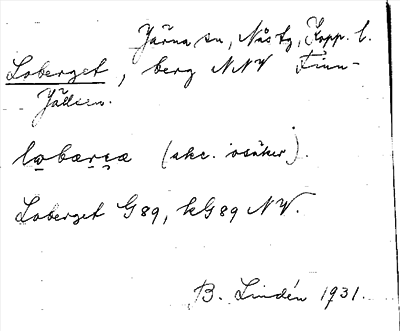 Järna sn, Nås tg, Kopp. l.
Loberget, berg NNV Finn-
Jällsen.
lωbærꞔæ (akc. osäker).
Loberget G 89, kG 89 NV.
B. Lindén 1931.